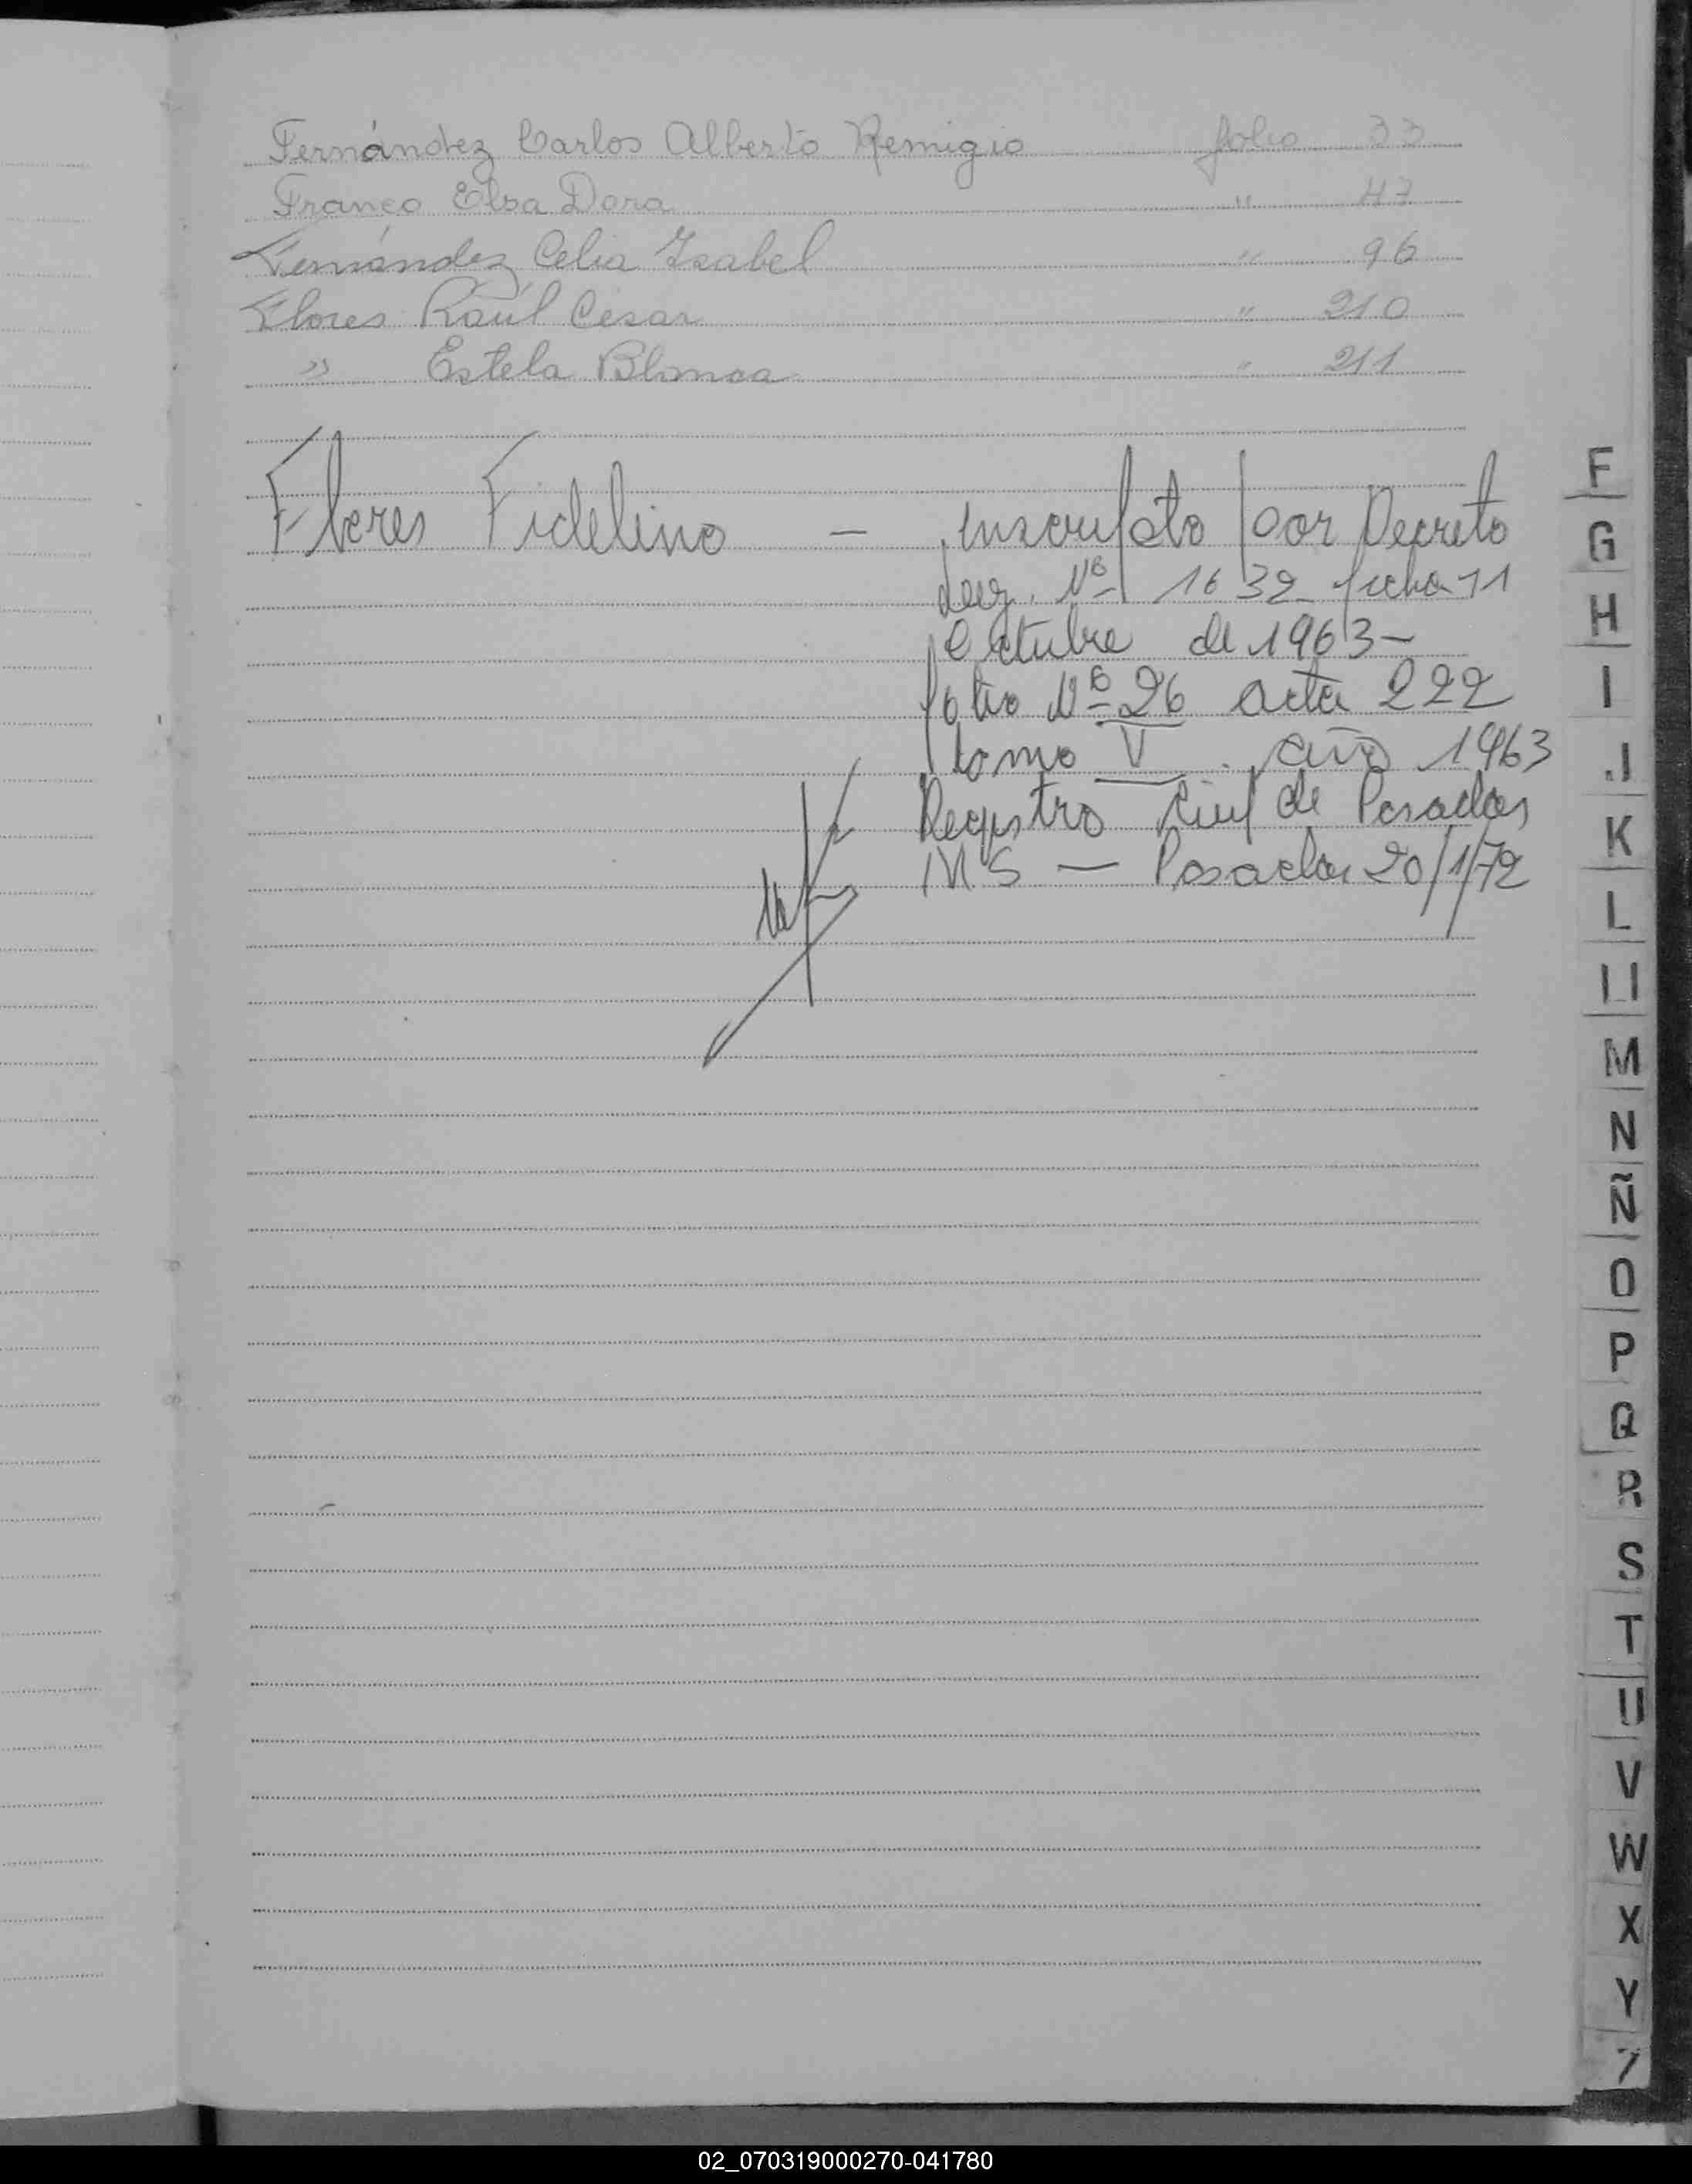 Fernández Carlos Alberto Remigio folio 33
Franco Elsa Dora " 47
Fernández Celia Isabel " 96
Flores Raúl César " 210
" Estela Blanca " 211
Flores Fidelino — inscripto por Decreto
Ley. Nº 1632 fecha 11
Octubre de 1963-
folio Nº 26 acta 222
tomo V. año 1963
Registro Civil de Posadas
MS — Posadas 20/1/72
F
G
H
I
J
K
L
Ll
M
N
Ñ
O
P
Q
R
S
T
U
V
W
X
Y
Z
02_070319000270-041780